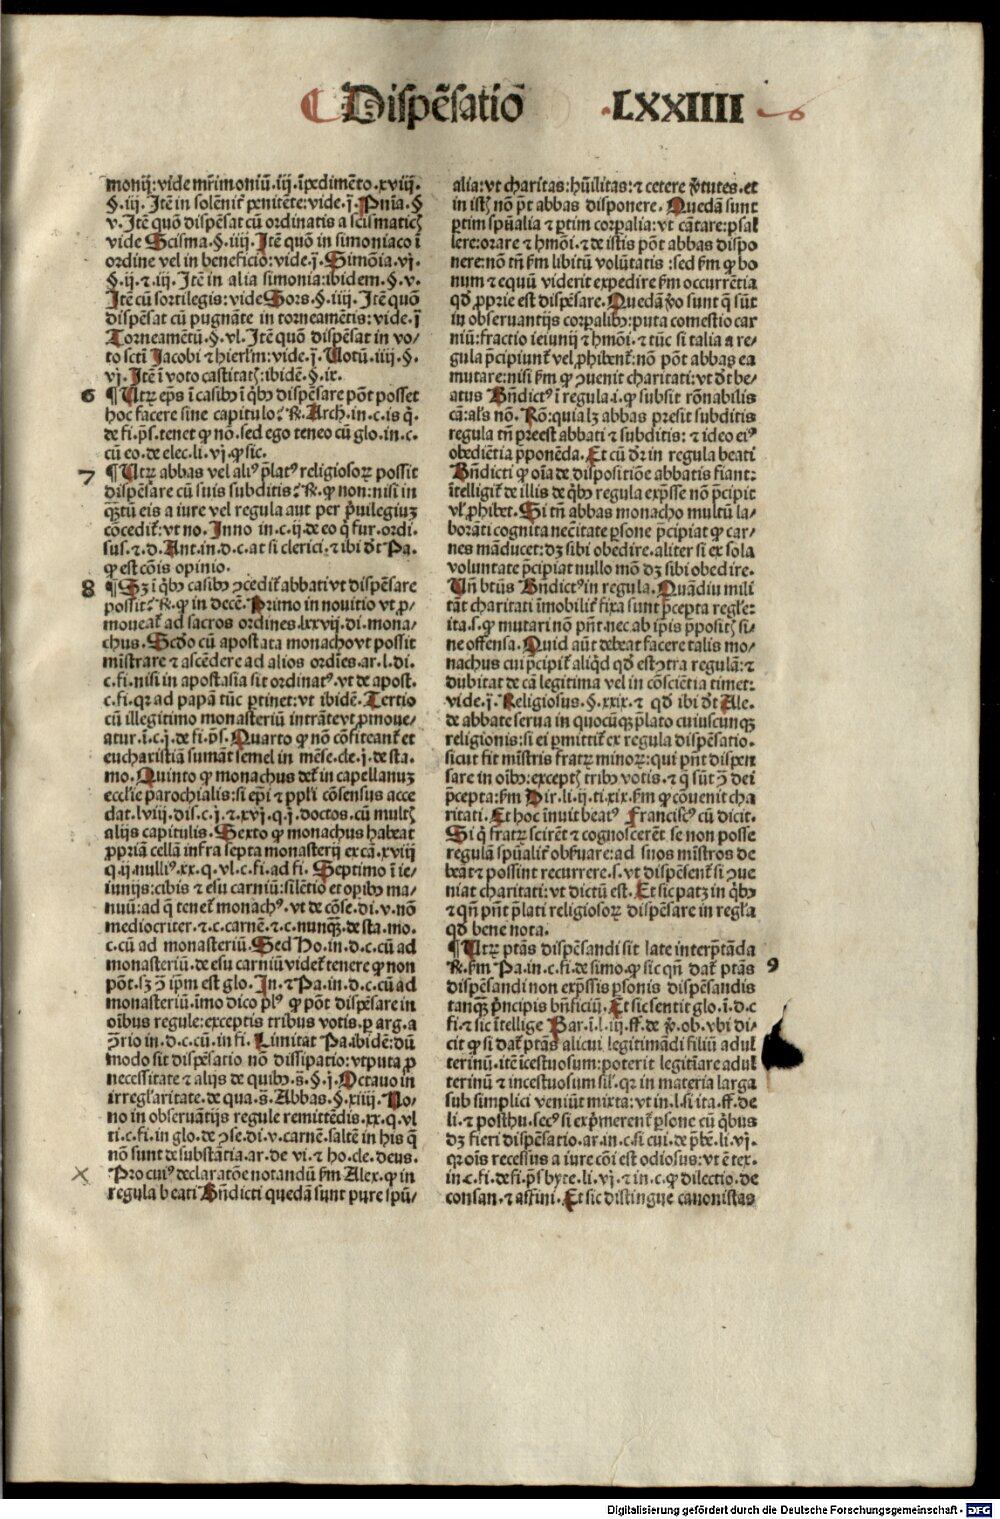 Dispēsatiō
.LXXIIII
monij: vide mr̄imoniū.iij.īpedimēto.xviij.
§.iij. Itē in solēnit̄ penitēte: vide.j. Pnīa.§
v. Itē quō dispēsat cū ordinatis a scismaticꝭ
vide Scisma.§.iiij. Itē quō in simoniaco ī
ordine vel in beneficio: vide.j. Simōia.vj.
§.ij. ⁊ iij. Itē in alia simonia: ibidem.§.v.
Itē cū sortilegis: vide Sors.§.iiij. Itē quō
dispēsat cū pugnāte in torneamētis: vide.j
Torneamētū.§.vl. Itē quō dispēsat in vo/
to scti Jacobi ⁊ hierlm̄: vide.j. Uotū.iiij.§.
vj. Itē ī voto castitatꝭ: ibidē.§.ix.
6 ¶ Utꝝ ep̄s ī casibꝰ ī q̄bꝰ dispēsare pōt posset
hoc facere sine capitulo: ℟. Arch. in.c. is q̄.
de fi. p̄s. tenet ꝙ nō. sed ego teneo cū glo. in.c.
cū eo. de elec. li. vj. ꝙ sic.
7 ¶ Utꝝ abbas vel aliꝰ p̄latꝰ religiosoꝝ possit
dispēsare cū suis subditis: ℟. ꝙ non: nisi in
qȝtū eis a iure vel regula aut per p̄uilegiuȝ
cōcedit̄: vt no. Inno in.c.ij. de eo q̄ fur. ordi.
sus. ⁊.d. Ant. in.d.c. at si clerici. ⁊ ibi dt̄ Pa.
ꝙ est cōis opinio.
8 ¶ Sȝ ī q̄bꝰ casibꝰ ↄcedit̄ abbati vt dispēsare
possit: ℟. ꝙ in decē. Primo in nouitio vt ꝓ/
moueat̄ ad sacros ordines. lxxvij. di. mona/
chus. Scdo cū apostata monacho vt possit
mīstrare ⁊ ascēdere ad alios ordīes. ar. l. di.
c. fi. nisi in apostasia sit ordinatꝰ. vt de apost.
c. fi. qꝛ ad papā tūc ꝑtinet: vt ibidē. Tertio
cū illegitimo monasteriū intrāte vt ꝓmoue/
atur. ī.c.j. de fi. p̄s. Quarto ꝙ nō cōfiteant̄ et
eucharistiā sumāt semel in mēse. cle. j. de sta.
mo. Quinto ꝙ monachus det̄ in capellanuȝ
ecclīe parochialis: si epī ⁊ ppli cōsensus acce
dat. lviij. dis. c. j. ⁊. xvj. q. j. doctos. cū multꝭ
alijs capitulis. Sexto ꝙ monachus habeat
ꝓpriā cellā infra septa monasterij ex cā. xviij
q. ij. nullꝰ. xx. q. vl. c. fi. ad fi. Septimo ī ie/
iunijs: cibis ⁊ esu carniū: silētio et opibꝰ ma/
nuū: ad q̄ tenet̄ monachꝰ. vt de cōse. di. v. nō
mediocriter. ⁊.c. carnē. ⁊.c. nunqȝ. de sta. mo.
c. cū ad monasteriū. Sed Ho. in.d.c. cū ad
monasteriū. de esu carniū videt̄ tenere ꝙ non
pōt. sȝ ↄ̄ ip̄m est glo. In. ⁊ Pa. in.d.c. cū ad
monasteriū. īmo dico plꝰ ꝙ pōt dispēsare in
oībus regule: exceptis tribus votis. p arg. a
ↄ̄rio in.d.c. cū. in fi. Limitat Pa. ibidē: dū
modo sit dispēsatio nō dissipatio: vtputa ꝓ
necessitate ⁊ alijs de quibꝰ. s̄.§.j. Octauo in
irregl̄aritate. de qua. s̄. Abbas.§.xiiij. No/
no in obseruātijs regule remittēdis. xx. q. vl
ti. c. fi. in glo. de ↄse. di. v. carnē. saltē in his q̄
nō sunt de substātia. ar. de vi. ⁊ ho. cle. deus.
Pro cuiꝰ declaratōe notandū ẜm Alex. ꝙ in
regula beati Bn̄dicti quedā sunt pure spū/
alia: vt charitas: hūilitas: ⁊ cetere v̄tutes. et
in istꝭ nō pt̄ abbas disponere. Quedā sunt
ꝑtim spūalia ⁊ ꝑtim corꝑalia: vt cātare: psal
lere: orare ⁊ hmōi. ⁊ de istis pōt abbas dispo
nere: nō tn̄ ẜm libitū volūtatis: sed ẜm ꝙ bo
num ⁊ equū viderit expedire ẜm occurrētia
qd̄ ꝓprie est dispēsare. Quedā v̄o sunt q̄ sūt
in obseruantijs corꝑalibꝰ: puta comestio car
niū: fractio ieiunij ⁊ hmōi. ⁊ tūc si talia a re/
gula p̄cipiunt̄ vel ꝓhibent̄: nō pōt abbas ea
mutare: nisi ẜm ꝙ ↄuenit charitati: vt dt̄ be/
atus Bn̄dictꝰ ī regula. i. ꝙ subsit rōnabilis
cā: als nō. Rō: quia lȝ abbas presit subditis
regula tn̄ preest abbati ⁊ subditis: ⁊ ideo eiꝰ
obediētia p̄ponēda. Et cū dr̄ in regula beati
Bn̄dicti ꝙ oīa de dispositiōe abbatis fiant:
ītelligit̄ de illis de q̄bꝰ regula exp̄sse nō p̄cipit
vl̄ ꝓhibet. Si tn̄ abbas monacho multū la/
borāti cognita nec̄itate ꝑsone p̄cipiat ꝙ car/
nes māducet: dȝ sibi obedire. aliter si ex sola
voluntate p̄cipiat nullo mō dȝ sibi obedire.
Un̄ btūs Bn̄dictꝰ in regula. Quādiu mili
tāt charitati īmobilit̄ fixa sunt p̄cepta regl̄e:
ita. s. ꝙ mutari nō pn̄t. nec ab ip̄is p̄positꝭ si/
ne offensa. Quid aūt debeat facere talis mo/
nachus cui p̄cipit̄ aliqd̄ qd̄ est ↄtra regulā: ⁊
dubitat de cā legitima vel in cōsciētia timet:
vide.j. Religiosus.§.xxix. ⁊ qd̄ ibi dt̄ Ale.
de abbate serua in quocūqȝ p̄lato cuiuscunqȝ
religionis: si ei ꝑmittit̄ ex regula dispēsatio.
sicut fit mīstris fratꝝ minoꝝ: qui pn̄t dispen
sare in oībꝰ: exceptꝭ tribꝰ votis. ⁊ q̄ sūt ↄ̄ dei
p̄cepta: ẜm Dir. li. ij. ti. xix. ẜm ꝙ cōuenit cha
ritati. Et hoc īnuit beatꝰ Franciscꝰ cū dicit.
Si q̄ fratꝝ scirēt ⁊ cognoscerēt se non posse
regulā spūalit̄ obẜuare: ad suos mīstros de
beāt ⁊ possint recurrere. s. vt dispēsent̄ si ↄue
niat charitati: vt dictū est. Et sic patȝ in q̄bꝰ
⁊ qn̄ pn̄t p̄lati religiosoꝝ dispēsare in regl̄a
qd̄ bene nota.
¶ Utꝝ ptās dispēsandi sit late interp̄tāda 9
℟. ẜm Pa. in.c. fi. de simo. ꝙ sic qn̄ dat̄ ptās
dispēsandi non exp̄ssis ꝑsonis dispēsandis
tanqȝ p̄ncipis bn̄ficiū. Et sic sentit glo. ī.d.c
fi. ⁊ sic ītellige Bar. ī. l. iij. ff. de v̄. ob. vbi di/
cit ꝙ si dat̄ ptās alicui legitimādi filiū adul
terinū. itē īcestuosum: poterit legitīare adul
terinū ⁊ incestuosum sil̄. qꝛ in materia larga
sub simplici veniūt mixta: vt in. l. si ita. ff. de
li. ⁊ posthu. secꝰ si exp̄merent̄ ꝑsone cū q̄bus
dȝ fieri dispēsatio. ar. in.c. si cui. de p̄bē. li. vj.
qꝛ oīs recessus a iure cōi est odiosus: vt ē tex.
in.c. fi. de fi. p̄sbyte. li. vj. ⁊ in.c. ꝙ dilectio. de
consan. ⁊ affini. Et sic distingue canonistas
Digitalisierung gefördert durch die Deutsche Forschungsgemeinschaft - DFG